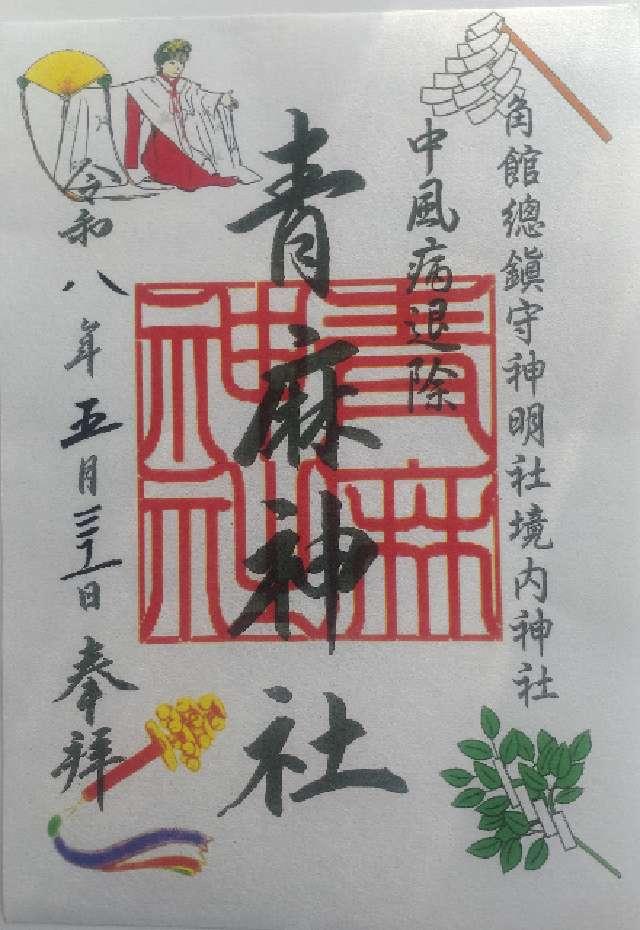 角館總鎮守神明社境内神社
中風病退除
青麻神社
青麻
神社
令和八年五月三十一日奉拝